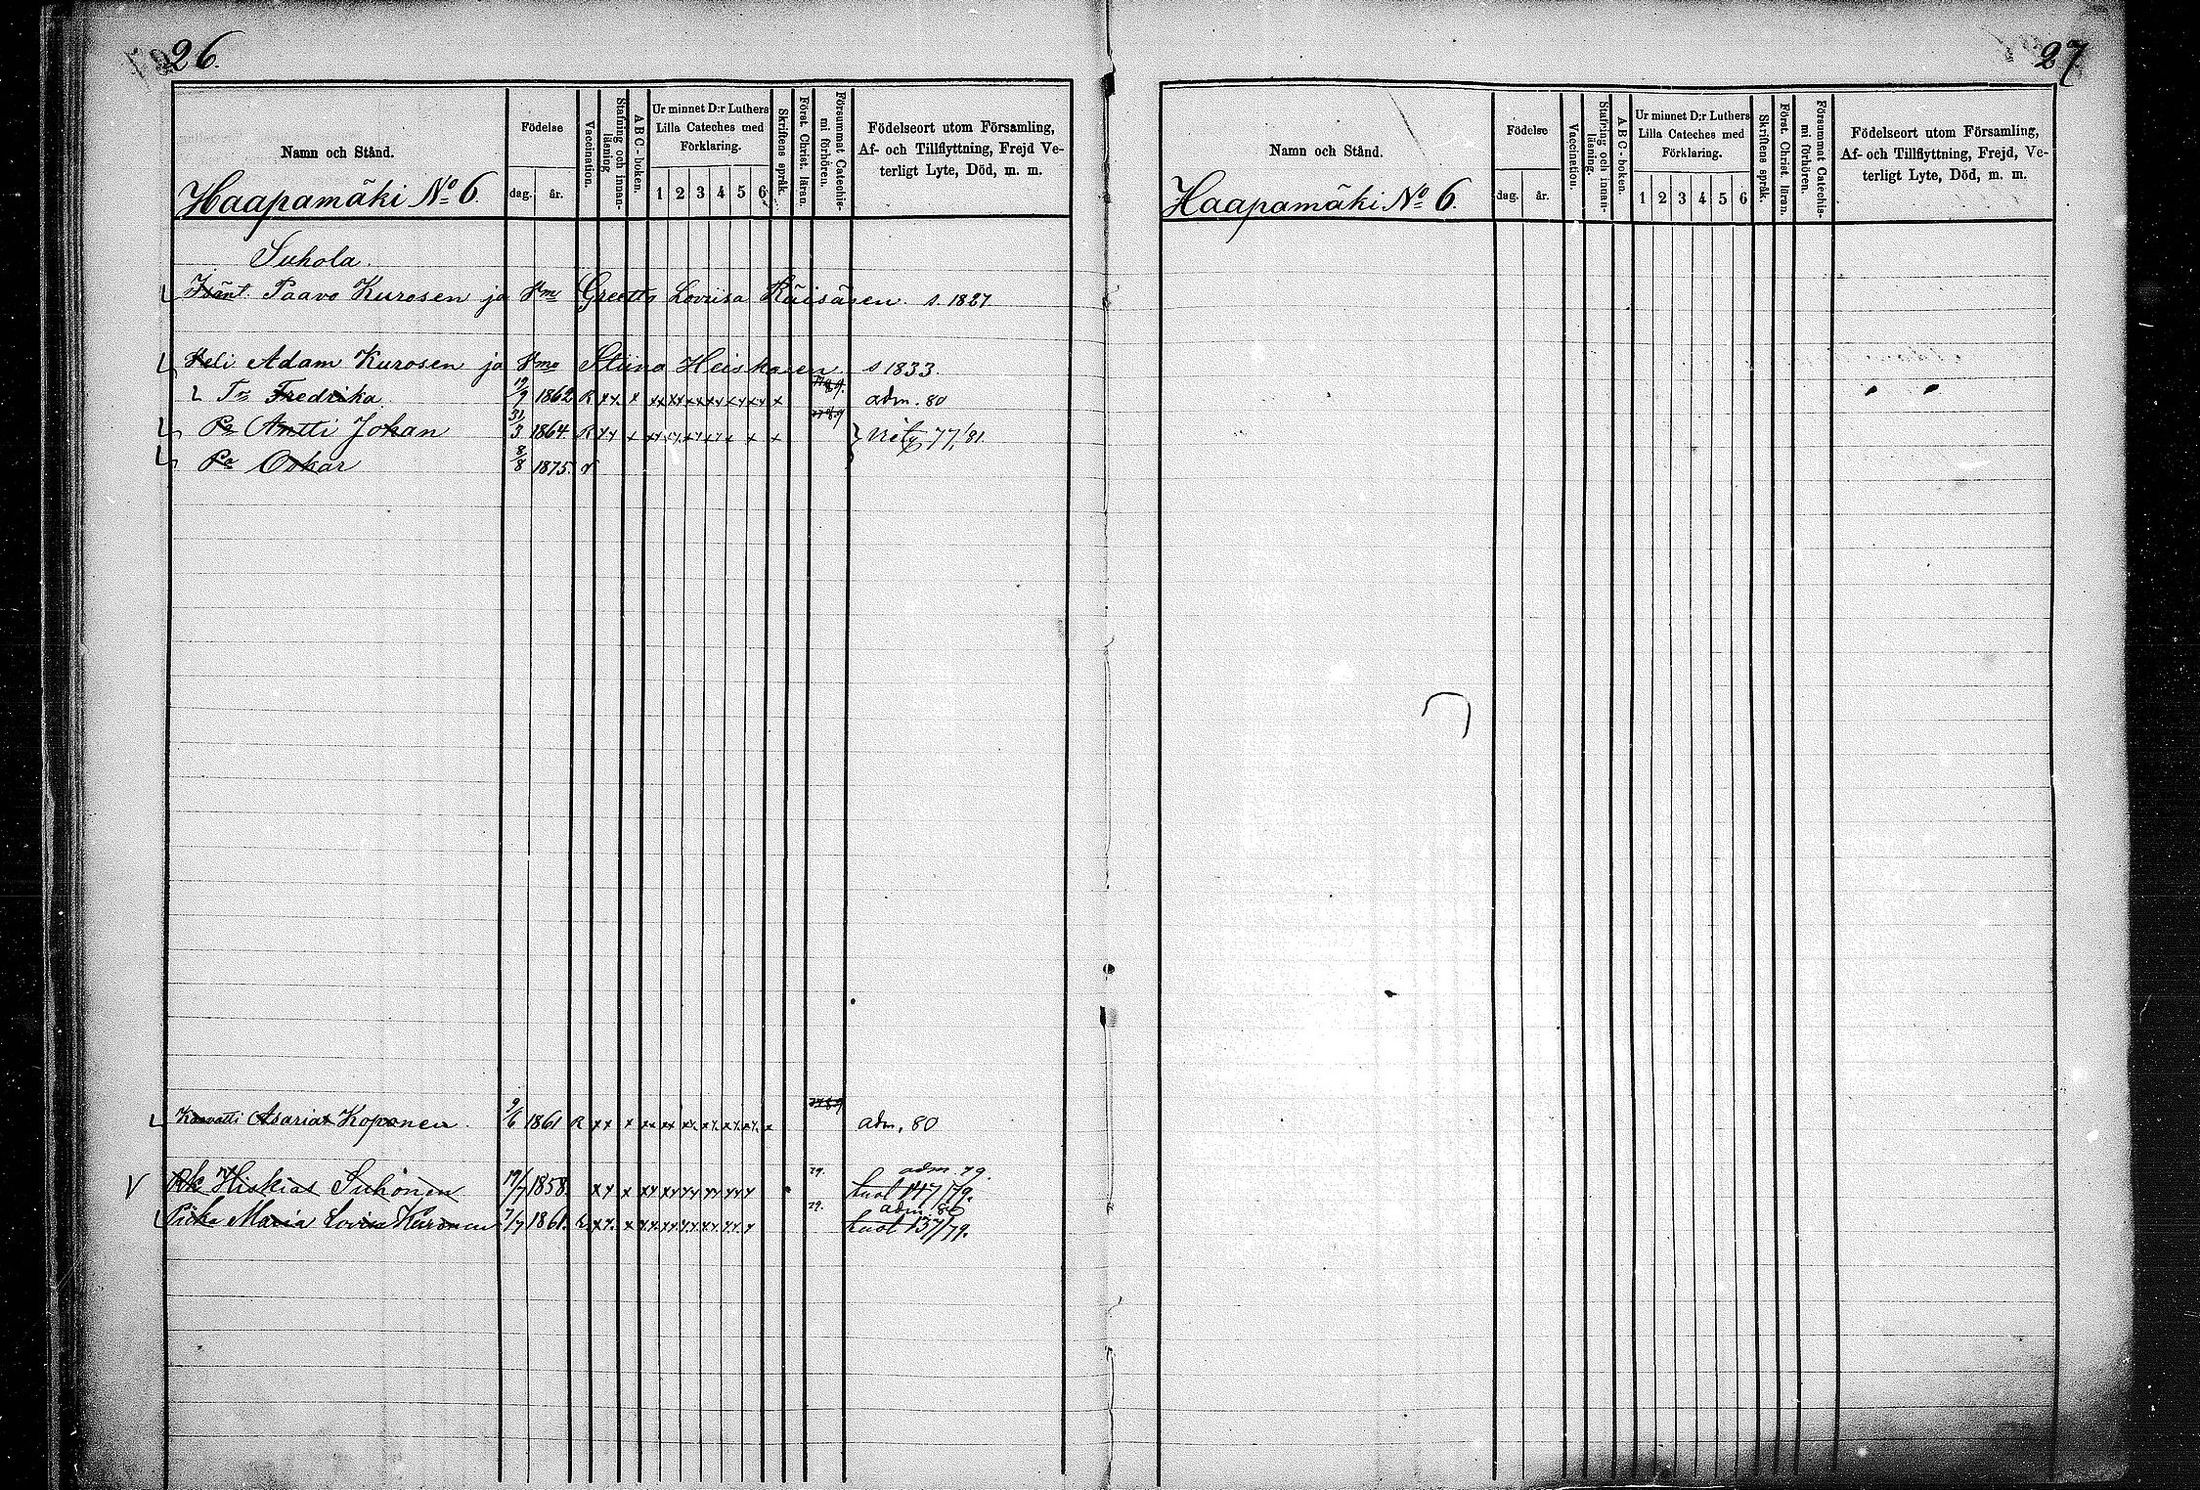 26.
Namn och Stånd.
Födelse
dag. år.
Vaccination.
Stafning och innanläsning
ABC-boken.
Ur minnet D:r Luthers
Lilla Cateches med
Förklaring.
1 2 3 4 5 6
Skriftens språk.
Först. Christ. läran.
Försummat Catechismi förhören.
Födelseort utom Församling,
Af- och Tillflyttning, Frejd Ve-
terligt Lyte, Död, m. m.
Haapamäki No 6.
Suhola.
Isänt. Paavo Kurosen ja Vmo Greetta Loviisa Räisäsen s. 1827.
Veli Adam Kurosen ja Vmo Stiina Heiskasen s 1833.
Tr Fredrika 19/9 1862 R xx x xx xx xx xx xx xx x adm. 80
Pa Antti Johan 31/3 1864. R xx x x x 77/81.
Pa Oskar 8/8 1875. v
Kasvatti Asarias Koponen 9/6 1861 R xx x xx xx xx xx xx xx x adm, 80
79. adm. 79.
Rk Hiskias Suhonen 19/7 1858. xx x xx xx xx xx xx 147/79.
79. adm. 80
Piika Maria Loviisa Kuronen 7/7 1861. xx. x xx xx xx xx xx x 137/79.
27
Namn och Stånd.
Födelse
dag. år.
Vaccination.
Stafning och innanläsning.
ABC-boken.
Ur minnet D:r Luthers
Lilla Cateches med
Förklaring.
1 2 3 4 5 6
Skriftens språk.
Först. Christ. läran.
Försummat Catechismi förhören.
Födelseort utom Församling,
Af- och Tillflyttning, Frejd, Ve-
terligt Lyte, Död, m. m.
Haapamäki No 6.